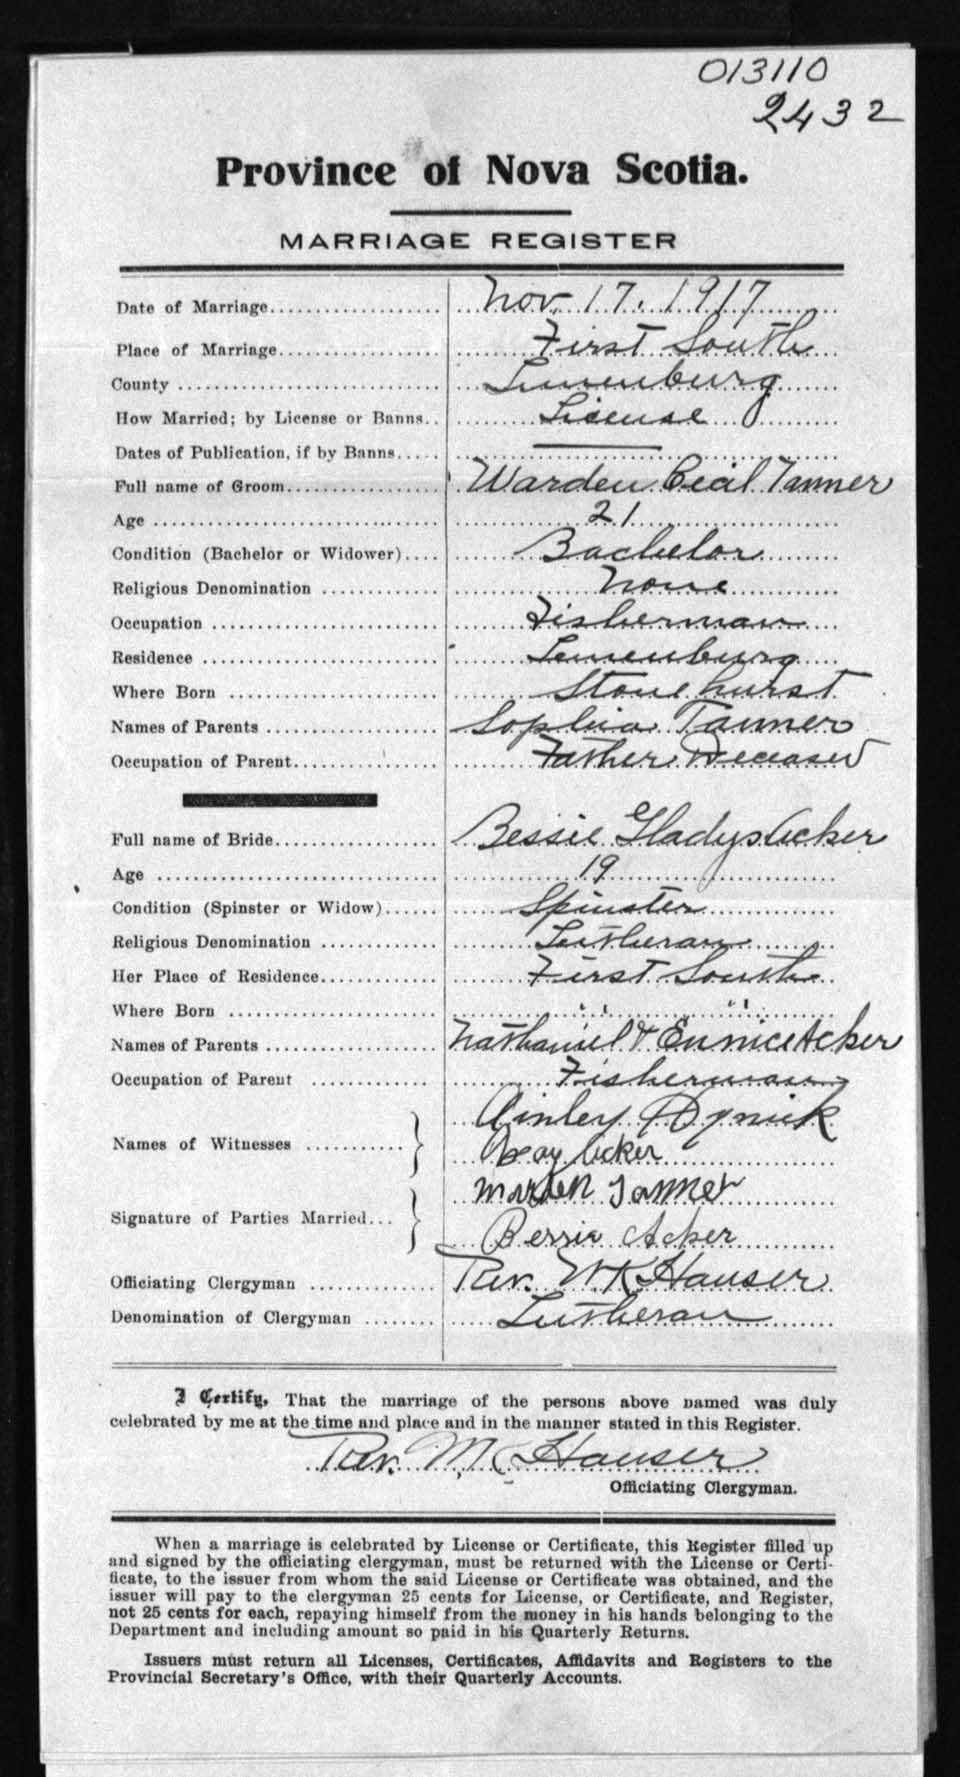 013110
2432
Province of Nova Scotia.
MARRIAGE REGISTER
Date of Marriage Nov. 17. 1917
Place of Marriage First South
County Lunenburg
How Married; by License or Banns License
Dates of Publication, if by Banns
Full name of Groom Warden Cecil Tanner
Age 21
Condition (Bachelor or Widower) Bachelor
Religious Denomination None
Occupation Fisherman
Residence Lunenburg
Where Born Stonehurst
Names of Parents Sophia Tanner
Occupation of Parent Father Deceased
Full name of Bride Bessie Gladys Acker
Age 19
Condition (Spinster or Widow) Spinster
Religious Denomination Lutheran
Her Place of Residence First South
Where Born " "
Names of Parents Nathaniel & Eunice Acker
Occupation of Parent Fisherman
Ainley
Names of Witnesses
Acker
Warden Tanner
Signature of Parties Married
Bessie Acker
Officiating Clergyman Rev. W K Hauser
Denomination of Clergyman Lutheran
I Certify, That the marriage of the persons above named was duly
celebrated by me at the time and place and in the manner stated in this Register.
Rev. Hauser
Officiating Clergyman.
When a marriage is celebrated by License or Certificate, this Register filled up
and signed by the officiating clergyman, must be returned with the License or Certi-
ficate, to the issuer from whom the said License or Certificate was obtained, and the
issuer will pay to the clergyman 25 cents for License, or Certificate, and Register,
not 25 cents for each, repaying himself from the money in his hands belonging to the
Department and including amount so paid in his Quarterly Returns.
Issuers must return all Licenses, Certificates, Affidavits and Registers to the
Provincial Secretary's Office, with their Quarterly Accounts.